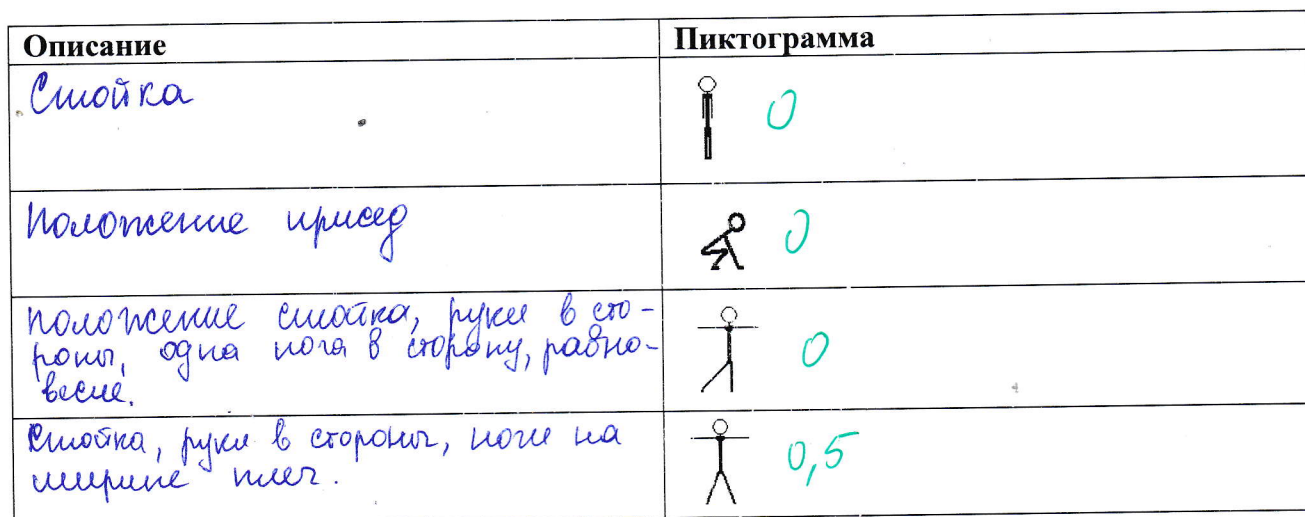 Описание Пиктограмма
Стойка 0
Положение присед 0
положение стойка, руки в сто-
роны, одна нога в сторону, равно-
весие. 0
Стойка, руки в стороны, ноги на
ширине плеч. 0,5